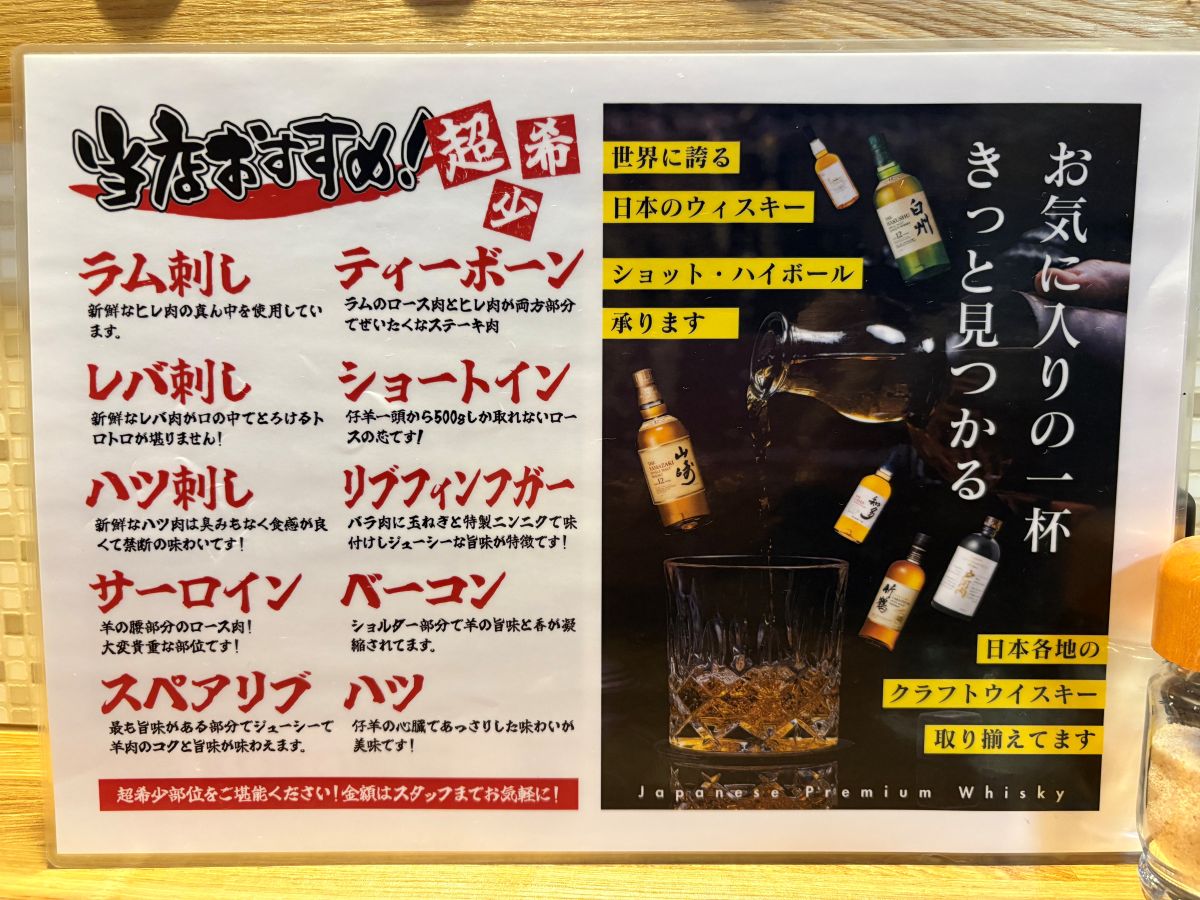 当店おすすめ!
超
希
少
ラム刺し
新鮮なヒレ肉の真ん中を使用してい
ます。
レバ刺し
新鮮なレバ肉が口の中でとろけるト
ロトロが堪りません!
ハツ刺し
新鮮なハツ肉は臭みもなく食感が良
くて禁断の味わいです!
サーロイン
羊の腰部分のロース肉!
大変貴重な部位です!
スペアリブ
最も旨味がある部分でジューシーで
羊肉のコクと旨味が味わえます。
ティーボーン
ラムのロース肉とヒレ肉が両方部分
でぜいたくなステーキ肉
ショートイン
仔羊一頭から500gしか取れないロー
スの芯です!
リブフィンフガー
バラ肉に玉ねぎと特製ニンニクで味
付けしジューシーな旨味が特徴です!
ベーコン
ショルダー部分で羊の旨味と香が凝
縮されてます。
ハツ
仔羊の心臓であっさりした味わいが
美味です!
超希少部位をご堪能ください!金額はスタッフまでお気軽に!
世界に誇る
日本のウィスキー
ショット・ハイボール
承ります
お気に入りの一杯
きっと見つかる
THE
HAKUSHU
白州
12
THE
YAMAZAKI
山崎
12
知多
竹鶴
日本各地の
クラフトウイスキー
取り揃えてます
Japanese Premium Whisky